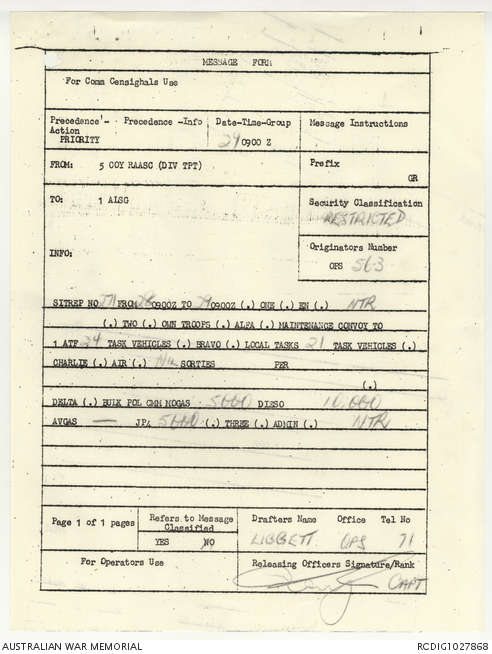 MESSAGE FORM
For Comm Censighals Use
Precedence'- Precedence -Info Date-Time-Group Message Instructions
Action
PRIORITY 290900 Z
FROM: 5 COY RAASC (DIV TPT) Prefix
GR
TO: 1 ALSG Security Classification
RESTRICTED
Originators Number
INFO: OPS 563
SITREP NO FROM 280900Z TO 290900Z (.) ONE (.) EN (.) NTR
(.) TWO (.) OWN TROOPS (.) ALFA (.) MAINTENANCE CONVOY TO
1 ATF 24 TASK VEHICLES (.) BRAVO (.) LOCAL TASKS 21 TASK VEHICLES (.)
CHARLIE (.) AIR (.) NIL SORTIES PER
(.)
DELTA (.) BULK POL CMM MOGAS 5000 DIESO 10,000
AVGAS — JP4 5000 (.) THREE (.) ADMIN (.) NTR
Page 1 of 1 pages Refers to Message Drafters Name Office Tel No
Classified
YES NO LIGGETT OPS 71
For Operators Use Releasing Officers Signature/Rank
CAPT
AUSTRALIAN WAR MEMORIAL RCDIG1027868